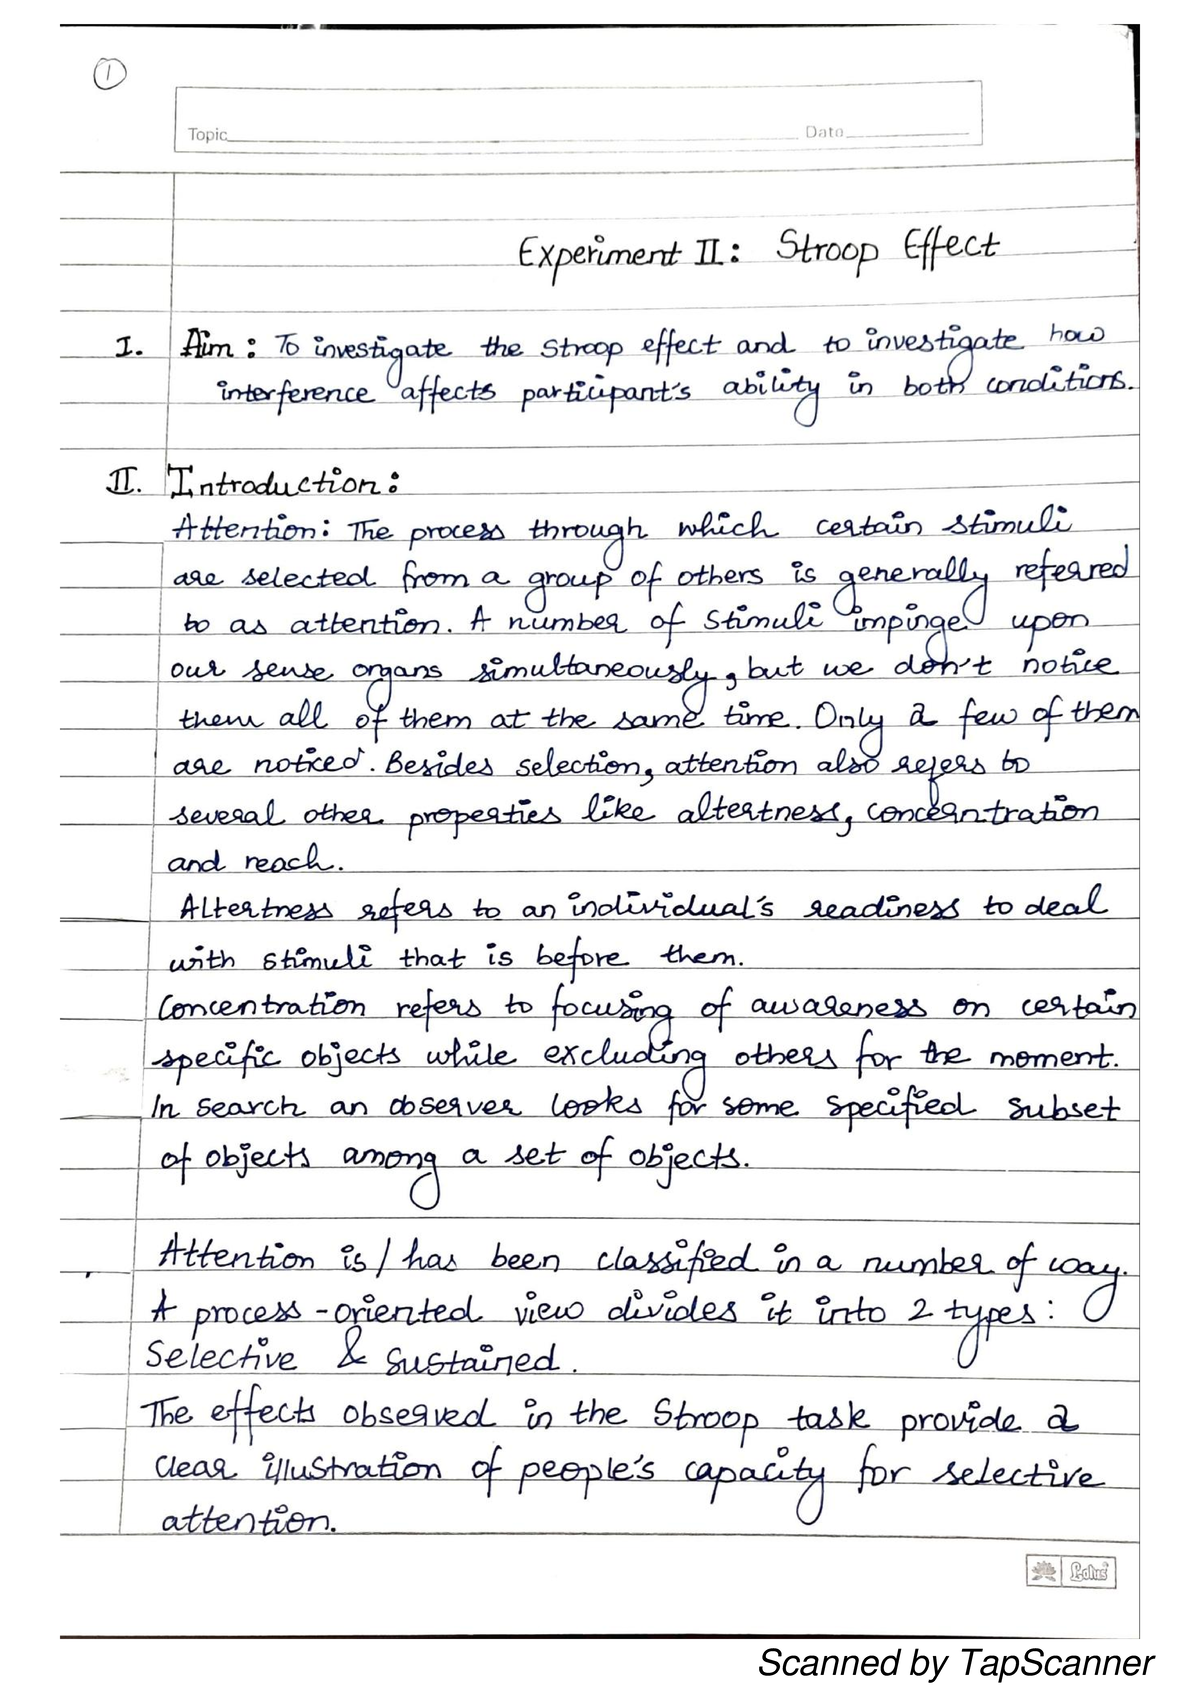 1
Topic Date
Experiment II: Stroop Effect
I. Aim: To investigate the Stroop effect and to investigate how
interference affects participant's ability in both conditions.
II. Introduction:
Attention: The process through which certain stimuli
are selected from a group of others is generally referred
to as attention. A number of stimuli impinge upon
our sense organs simultaneously, but we don't notice
them all of them at the same time. Only a few of them
are noticed. Besides selection, attention also refers to
several other properties like altertness, concerntration
and reach.
Altertness refers to an individual's readiness to deal
with stimuli that is before them.
Concentration refers to focusing of awareness on certain
specific objects while excluding others for the moment.
In search an observer looks for some specified subset
of objects among a set of objects.
Attention is/has been classified in a number of way.
A process-oriented view divides it into 2 types:
Selective & Sustained.
The effects observed in the Stroop task provide a
clear illustration of people's capacity for selective
attention.
Lotus
Scanned by TapScanner